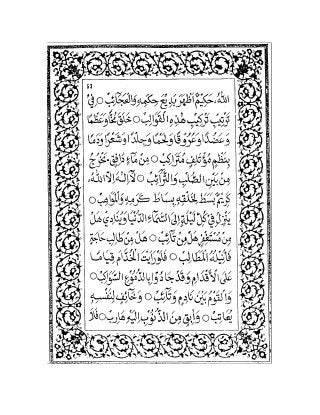 ٤٣
اللهُ، حَكِيْمٌ اَظْهَرَ بَدِيْعَ حِكَمِهٖ وَالْعَجَآئِبْ ۞ فِيْ
تَرْتِيْبِ تَرْكِيْبِ هٰذِهِ الْقَوَالِبْ ۞ خَلَقَ مُخًّا وَعَظْمًا
وَعَضُدًا وَعُرُوْقًا وَلَحْمًا وَجِلْدًا وَشَعْرًا وَدَمًا
بِنَظْمٍ مُؤْتَلِفٍ مُتَرَاكِبْ ۞ مِنْ مَآءٍ دَافِقٍ يَخْرُجُ
مِنْ بَيْنِ الصُّلْبِ وَالتَّرَآئِبْ ۞ لَآ اِلٰهَ اِلَّا اللهُ،
كَرِيْمٌ بَسَطَ لِخَلْقِهٖ بِسَاطَ كَرَمِهٖ وَالْمَوَاهِبْ ۞
يَنْزِلُ فِيْ كُلِّ لَيْلَةٍ اِلَى السَّمَآءِ الدُّنْيَا وَيُنَادِيْ هَلْ
مِنْ مُسْتَغْفِرٍ هَلْ مِنْ تَآئِبْ ۞ هَلْ مِنْ طَالِبِ حَاجَةٍ
فَاُنِيْلَهُ الْمَطَالِبْ ۞ فَلَوْ رَاَيْتَ الْخُدَّامَ قِيَامًا
عَلَى الْاَقْدَامِ وَقَدْ جَادُوْا بِالدُّمُوْعِ السَّوَاكِبْ ۞
وَالْقَوْمُ بَيْنَ نَادِمٍ وَتَآئِبْ ۞ وَخَآئِفٍ لِنَفْسِهٖ
يُعَاتِبْ ۞ وَاٰبِقٍ مِنَ الذُّنُوْبِ اِلَيْهِ هَارِبْ ۞ فَلَا